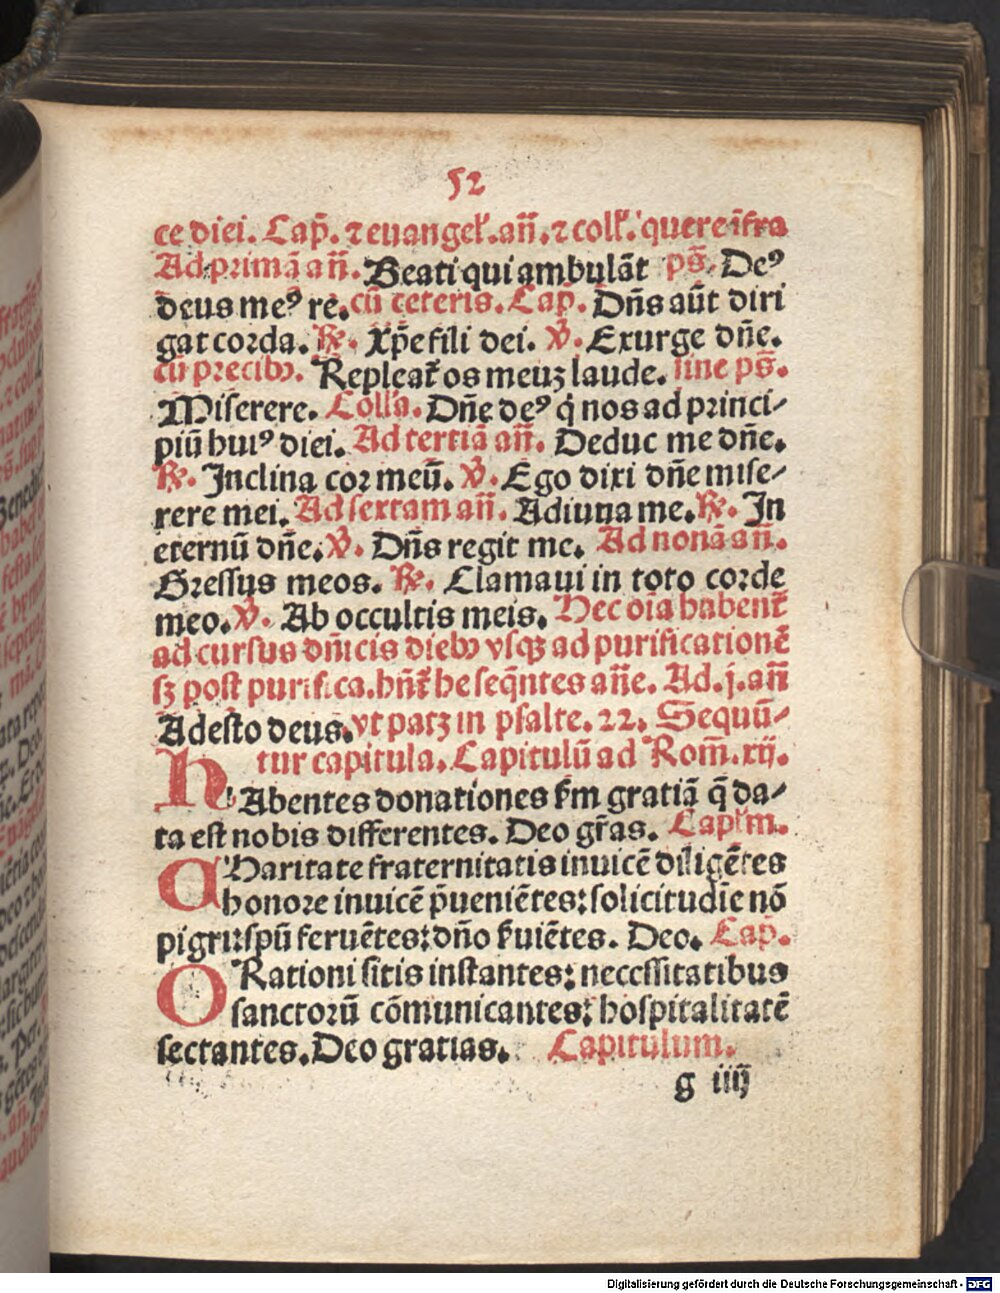 52
ce diei. Cap̃. ⁊ euangel̃. añ. ⁊ coll̃. quere ĩfra
Ad primã añ. Beati qui ambulãt ps̃. Deꝰ
deus meꝰ re. cũ ceteris. Cap̃. Dñs aũt diri
gat corda. ℟. Xp̃e fili dei. ℣. Exurge dñe.
cũ precibꝫ. Repleat̃ os meuꝫ laude. sine ps̃.
Miserere. Colla. Dñe deꝰ q̇ nos ad princi⸗
piũ huiꝰ diei. Ad tertiã añ. Deduc me dñe.
℟. Inclina cor meũ. ℣. Ego dixi dñe mise⸗
rere mei. Ad sextam añ. Adiuua me. ℟. In
eternũ dñe. ℣. Dñs regit me. Ad nonã añ.
Gressus meos. ℟. Clamaui in toto corde
meo. ℣. Ab occultis meis. Hec oĩa habent̃
ad cursus dñicis diebꝫ vsqꝫ ad purificationẽ
sꝫ post purifica. hñt̃ he seq̃ntes añe. Ad. j. añ
Adesto deus. vt patꝫ in psalte. 22. Sequũ⸗
tur capitula. Capitulũ ad Rom̃. xij.
HAbentes donationes ẜm gratiã q̃ da⸗
ta est nobis differentes. Deo gr̃as. Capl̃m.
CHaritate fraternitatis inuicẽ diligẽtes
honore inuicẽ p̃ueniẽtes: solicitudĩe nõ
pigri: spũ feruẽtes: dño ẜuiẽtes. Deo. Cap̃.
ORationi sitis instantes: necessitatibus
sanctorũ cõmunicantes: hospitalitatẽ
sectantes. Deo gratias. Capitulum.
g iiij
Digitalisierung gefördert durch die Deutsche Forschungsgemeinschaft - DFG